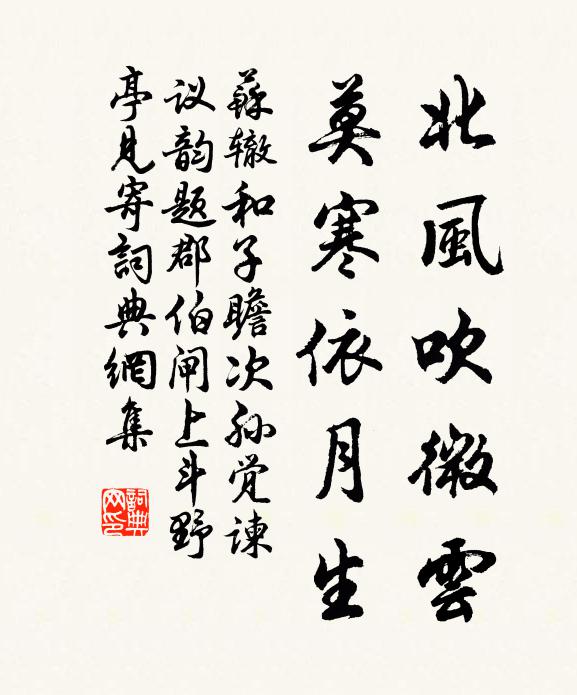 北風吹微雲
莫寒依月生
蘇辙和子瞻次孙觉谏
议韵题郡伯闸上斗野
亭見寄詞典網集
詞典
网印